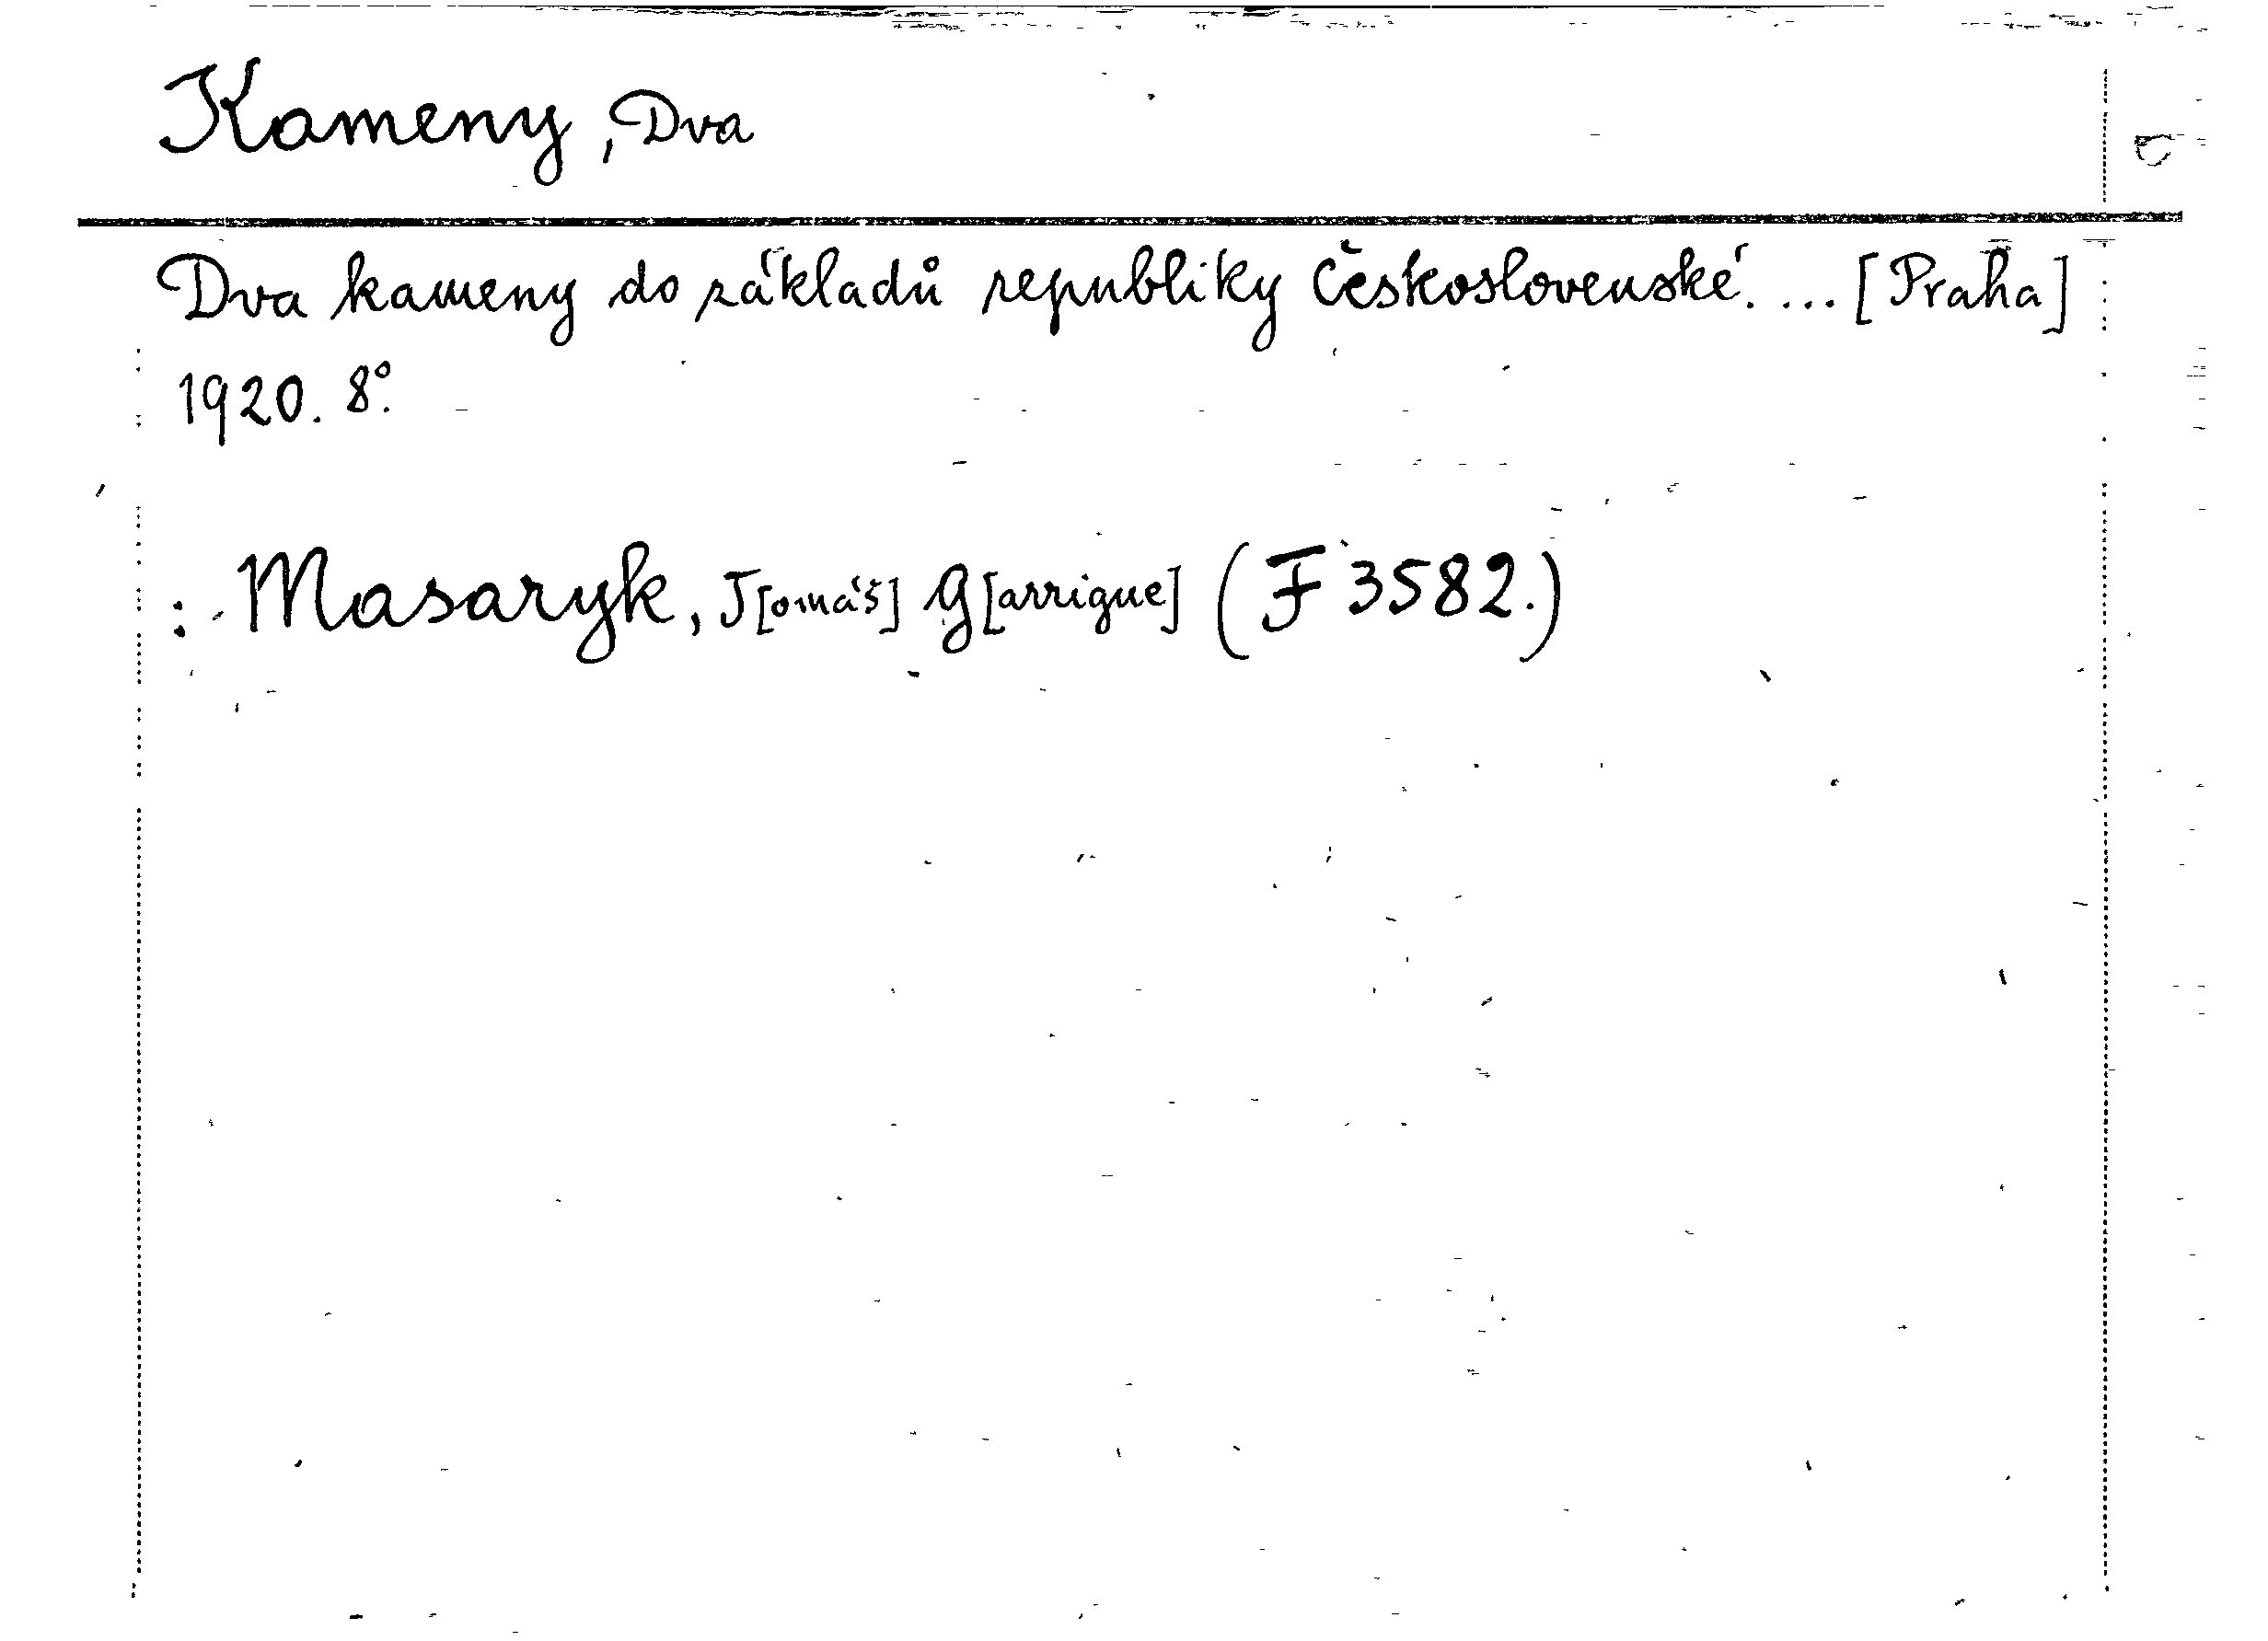 Kameny, Dva
Dva kameny do základů republiky Československé. ... [Praha]
1920. 8°.
: Masaryk, T[omáš] G[arrigue] (F 3582.)